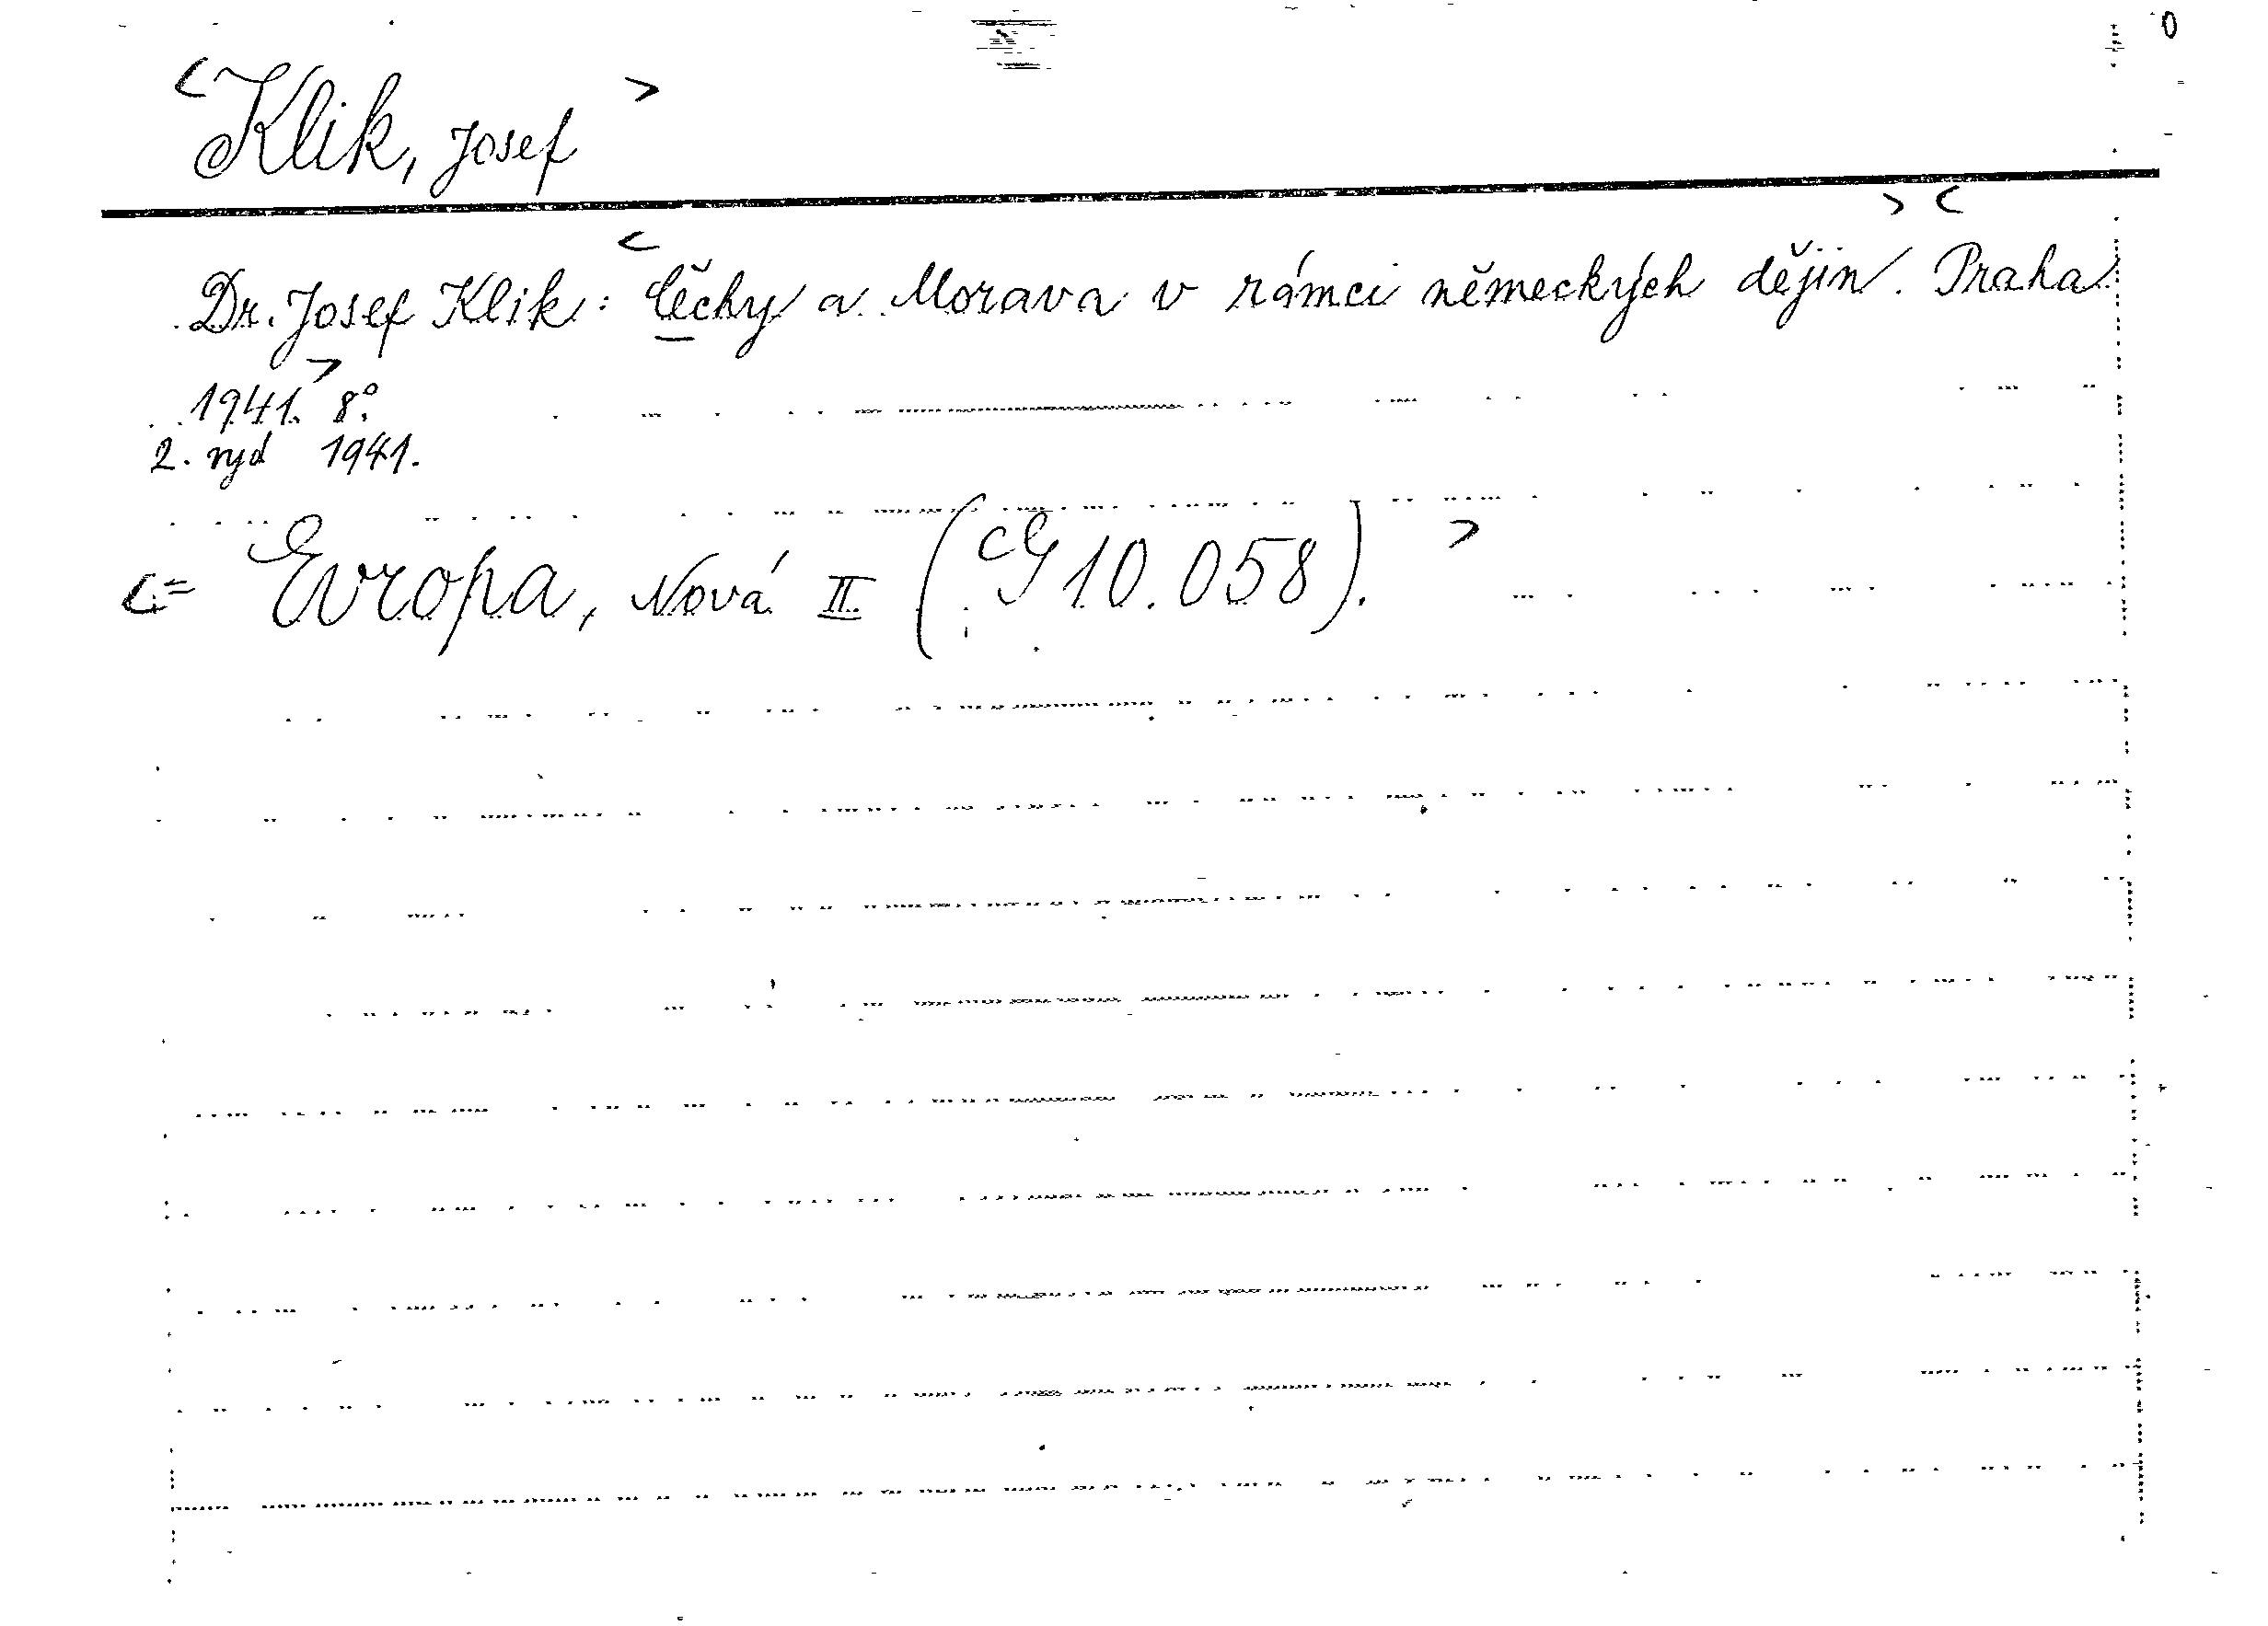 <Klik, Josef>
Dr. Josef Klik: <Čěchy a Morava v rámci německých dějin>. <Praha
1941.> 8°.
2. vyd 1941.
<= Evropa, Nová II (G 10.058).>